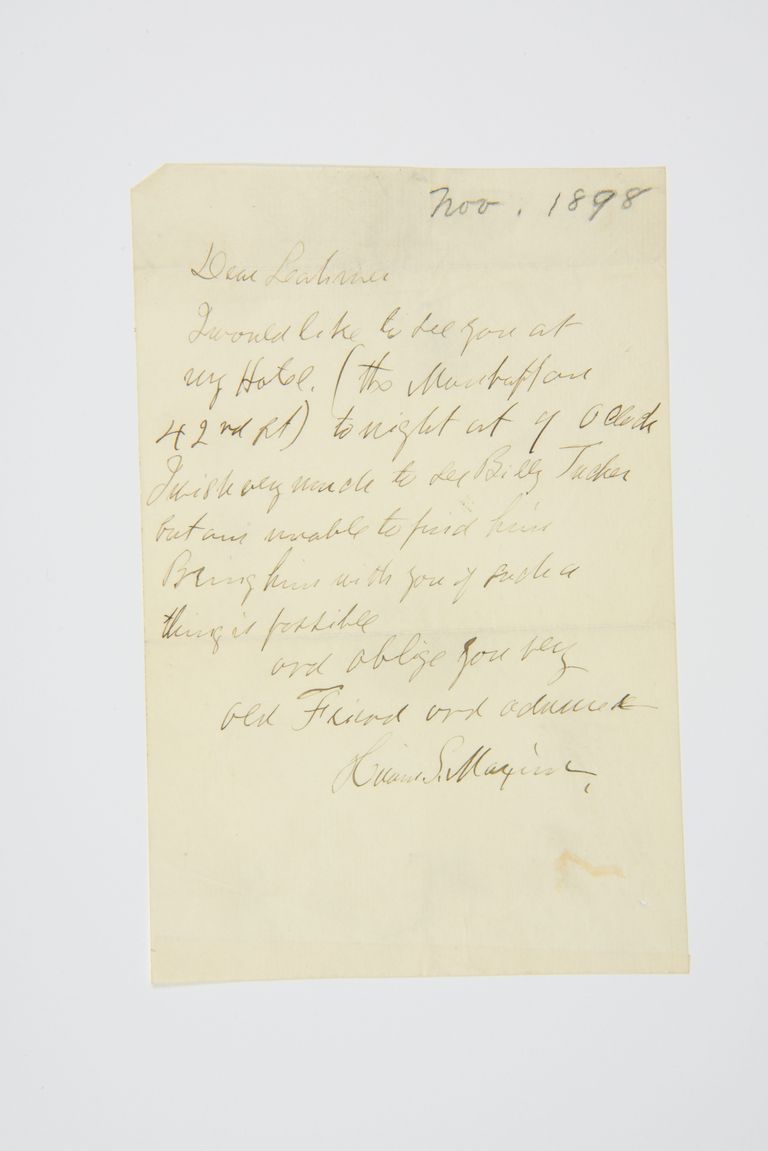 Nov. 1898
Dear Latimer
I would like to see you at
my Hotel. (the Manhattan
42nd st) tonight at 9 O Clock
I wish very much to see Billy Tucker
but am unable to find him
Bring him with you if such a
thing is possible
and oblige you very
old Friend and admirer
Hiram S. Maxim